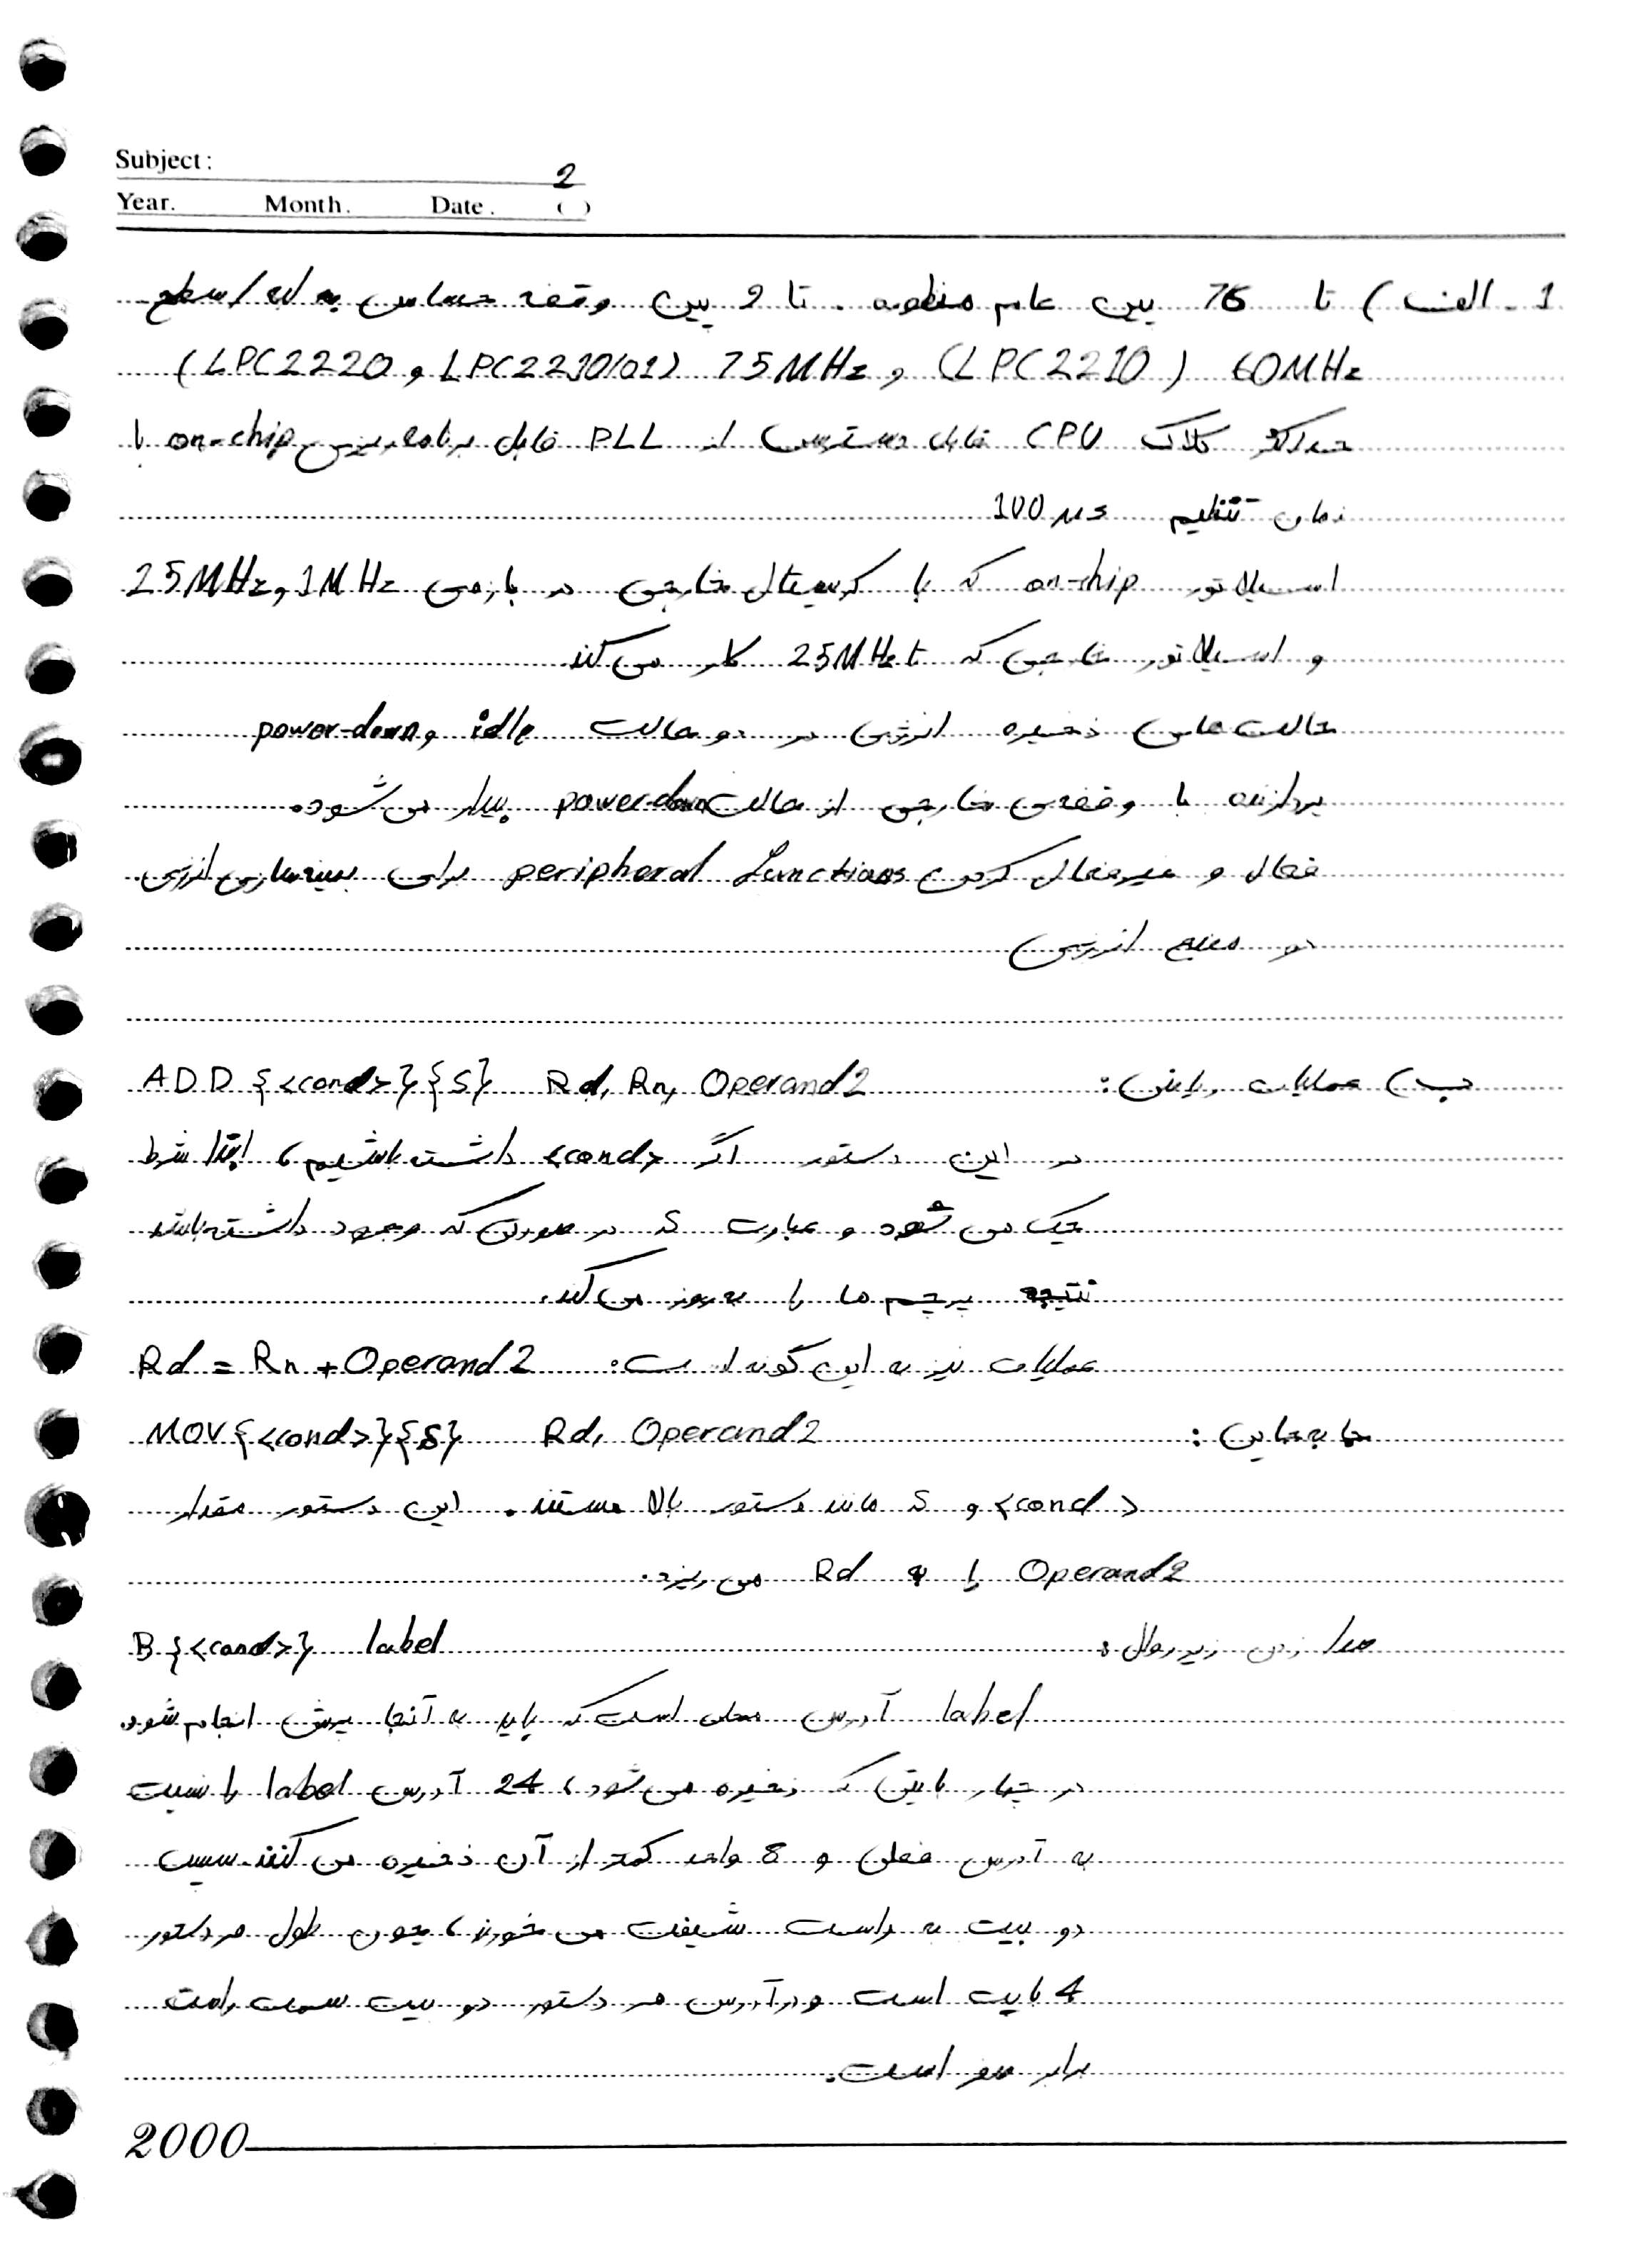 Subject:
2
Year. Month. Date. ( )
1 - الف) تا 76 پین عام منظوره . تا 9 پین وقفه حساس به لبه/سطح
60MHz (LPC2210) و 75MHz (LPC2210/01 و LPC2220)
حداکثر کلاک CPU قابل دسترسی از PLL قابل برنامه‌ریزی on-chip با
زمان تنظیم 100 μs
اسیلاتور on-chip که با کریستال خارجی در بازه‌ی 1MHz و 25MHz
و اسیلاتور خارجی که تا 25MHz کار می‌کند
حالت‌های ذخیره انرژی در دو حالت idle و power-down
پردازنده با وقفه‌ی خارجی از حالت power-down بیدار می‌شود.
فعال و غیرفعال کردن peripheral functions برای بهینه‌سازی انرژی.
دو منبع انرژی
ب) عملیات ریاضی: ADD {<cond>}{S} Rd, Rn, Operand2
در این دستور اگر <cond> داشته باشیم، ابتدا شرط
چیک می‌شود و عبارت S در صورتی که وجود داشته باشد
نتیجه پرچم ها را به روز می‌کند.
عملیات نیز به این گونه است: Rd = Rn + Operand2
جا به جایی: MOV{<cond>}{S} Rd, Operand2
<cond> و S مانند دستور بالا هستند. این دستور مقدار
Operand2 را به Rd می‌ریزد.
صدا زدن زیرروال: B {<cond>} label
label آدرس محلی است که باید به آنجا پرش انجام شود.
در چهار بایتی که ذخیره می‌شود، 24 آدرس label را نسبت
به آدرس فعلی و 8 واحد کمتر از آن ذخیره می‌کنند. سپس
دو بیت به راست شیفت می‌خورند، چون طول هر دستور
4 بایت است و در آدرس هر دستور دو بیت سمت راست
برابر صفر است.
2000